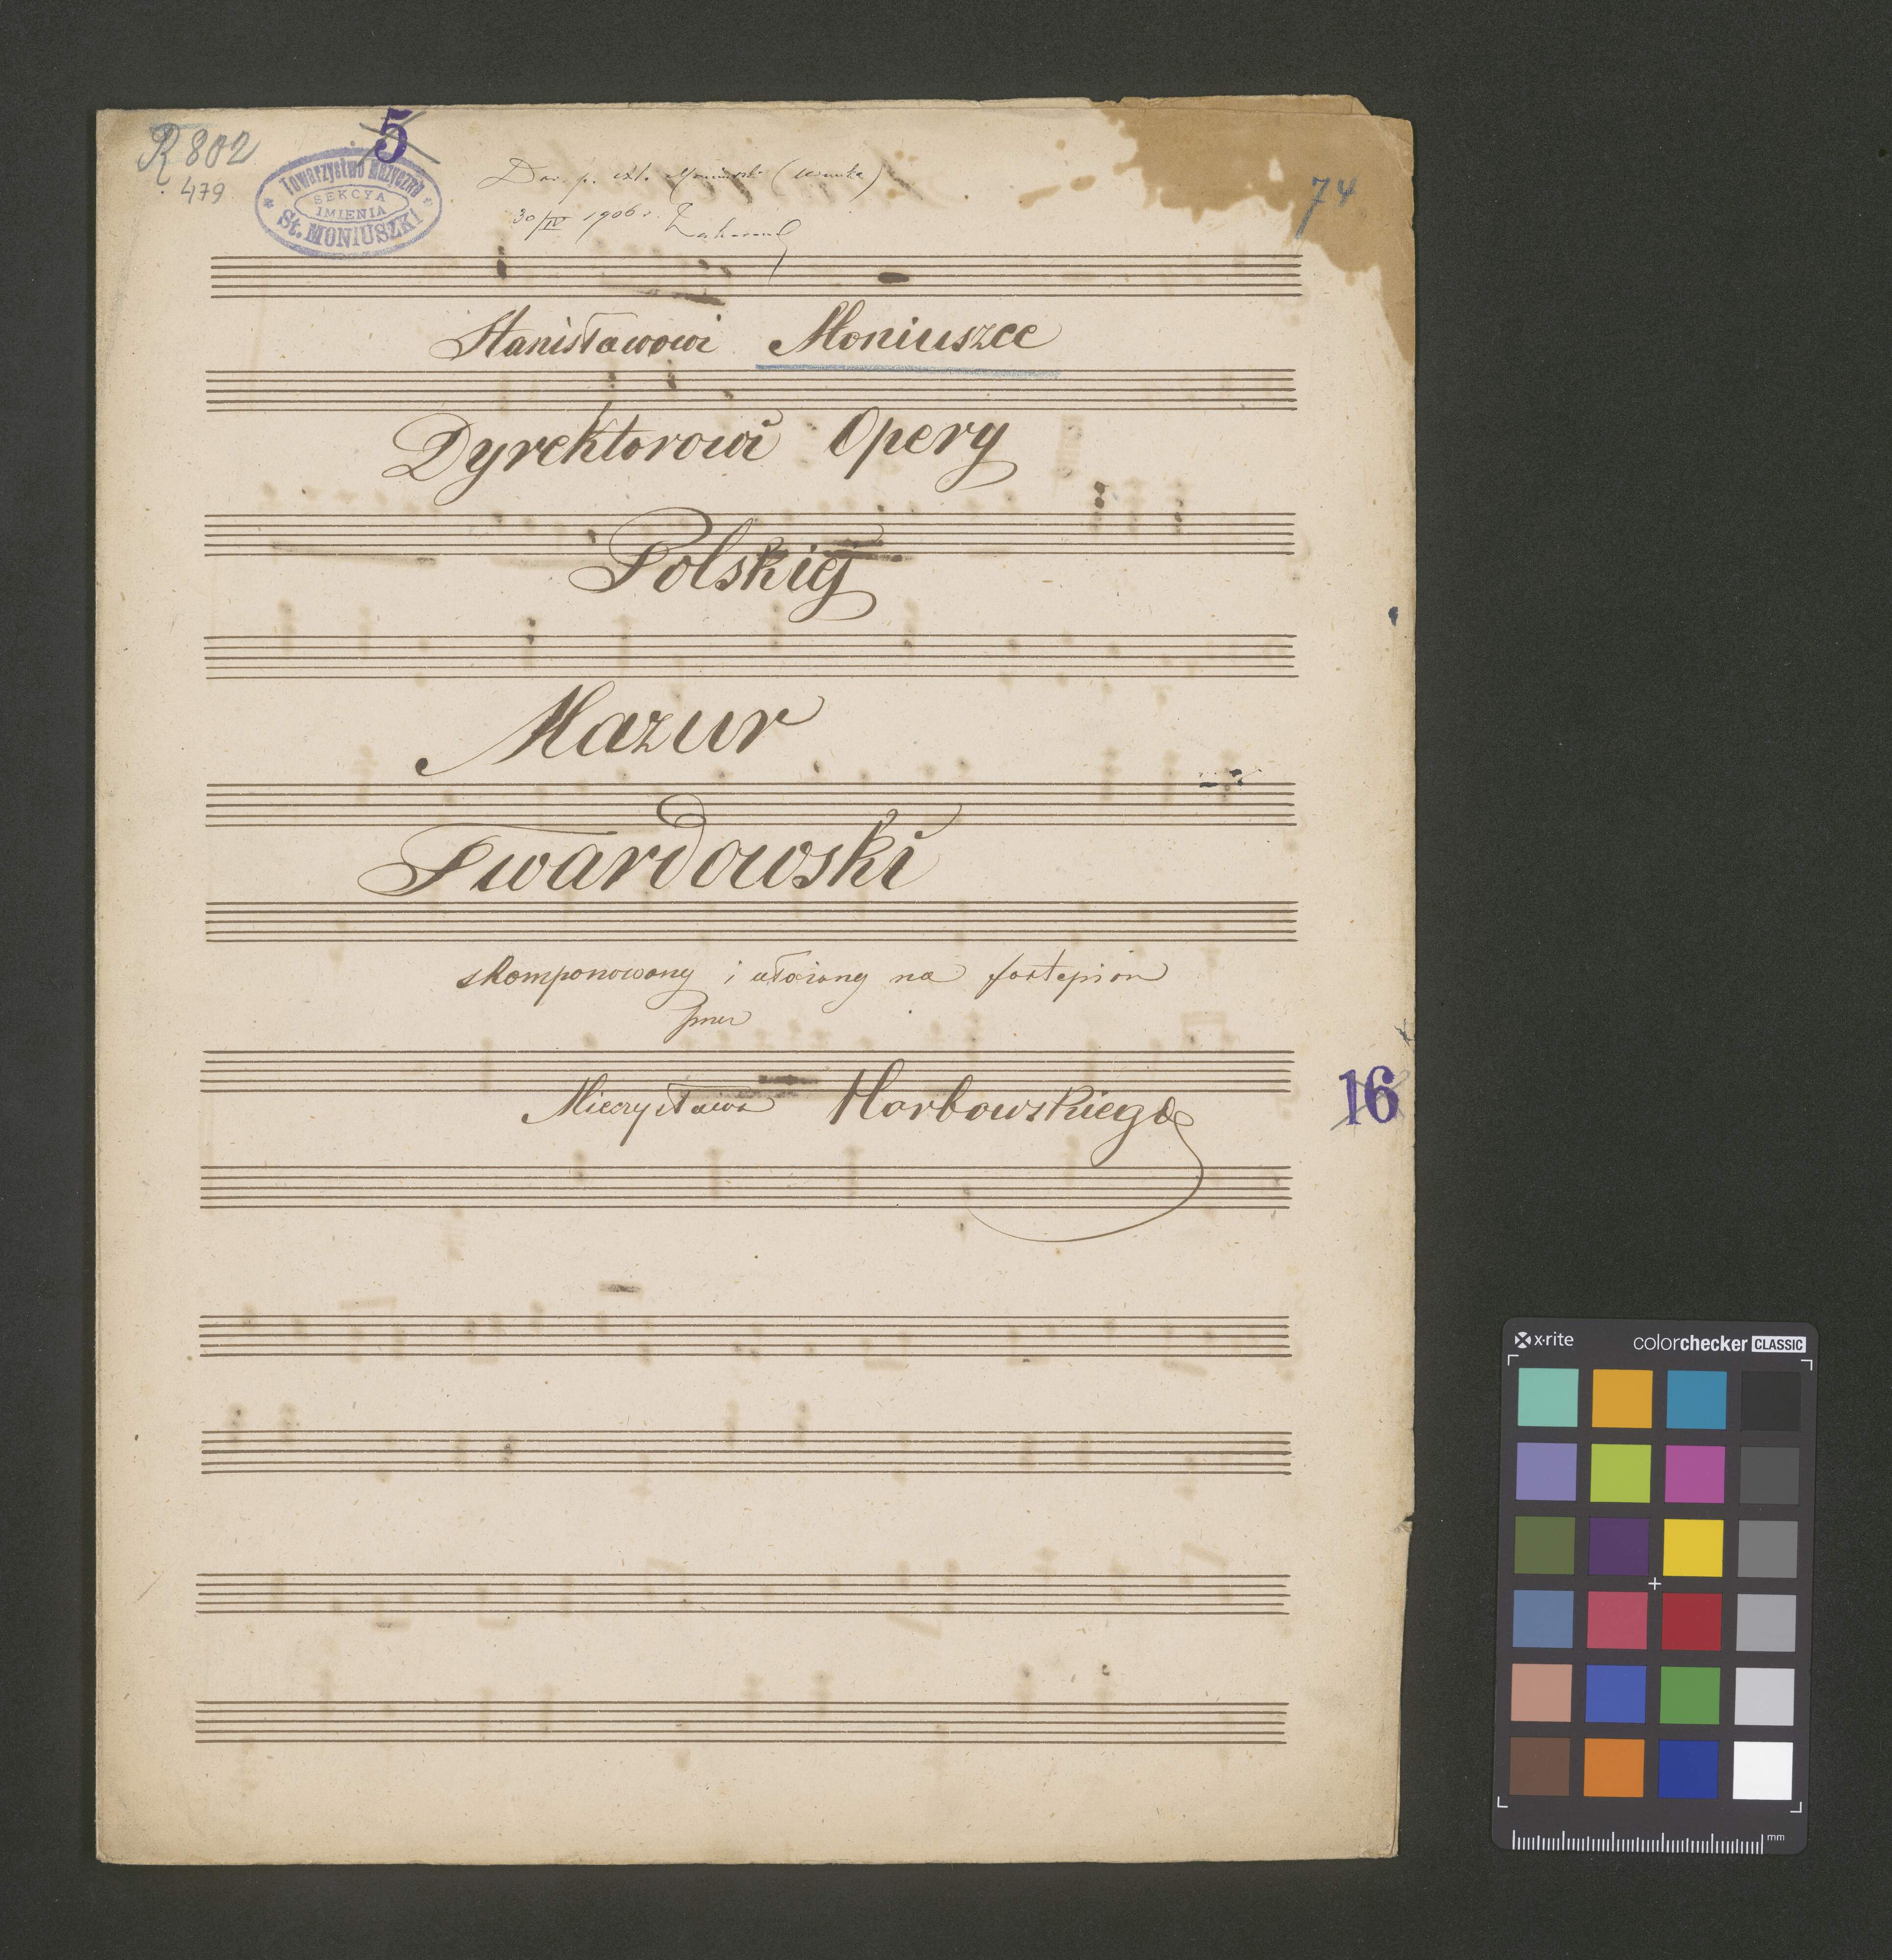 R 802
479
5
Towarzystwo Muzyczne
SEKCYA
IMIENIA
St. MONIUSZKI
Dar p. (wnuka)
30/IV 1906 r.
74
Stanisławowi Moniuszce
Dyrektorowi Opery
Polskiej
Mazur
Twardowski
skomponowany i ułożony na fortepian
przez
Mieczysława Horbowskiego
16
x·rite colorchecker CLASSIC
mm